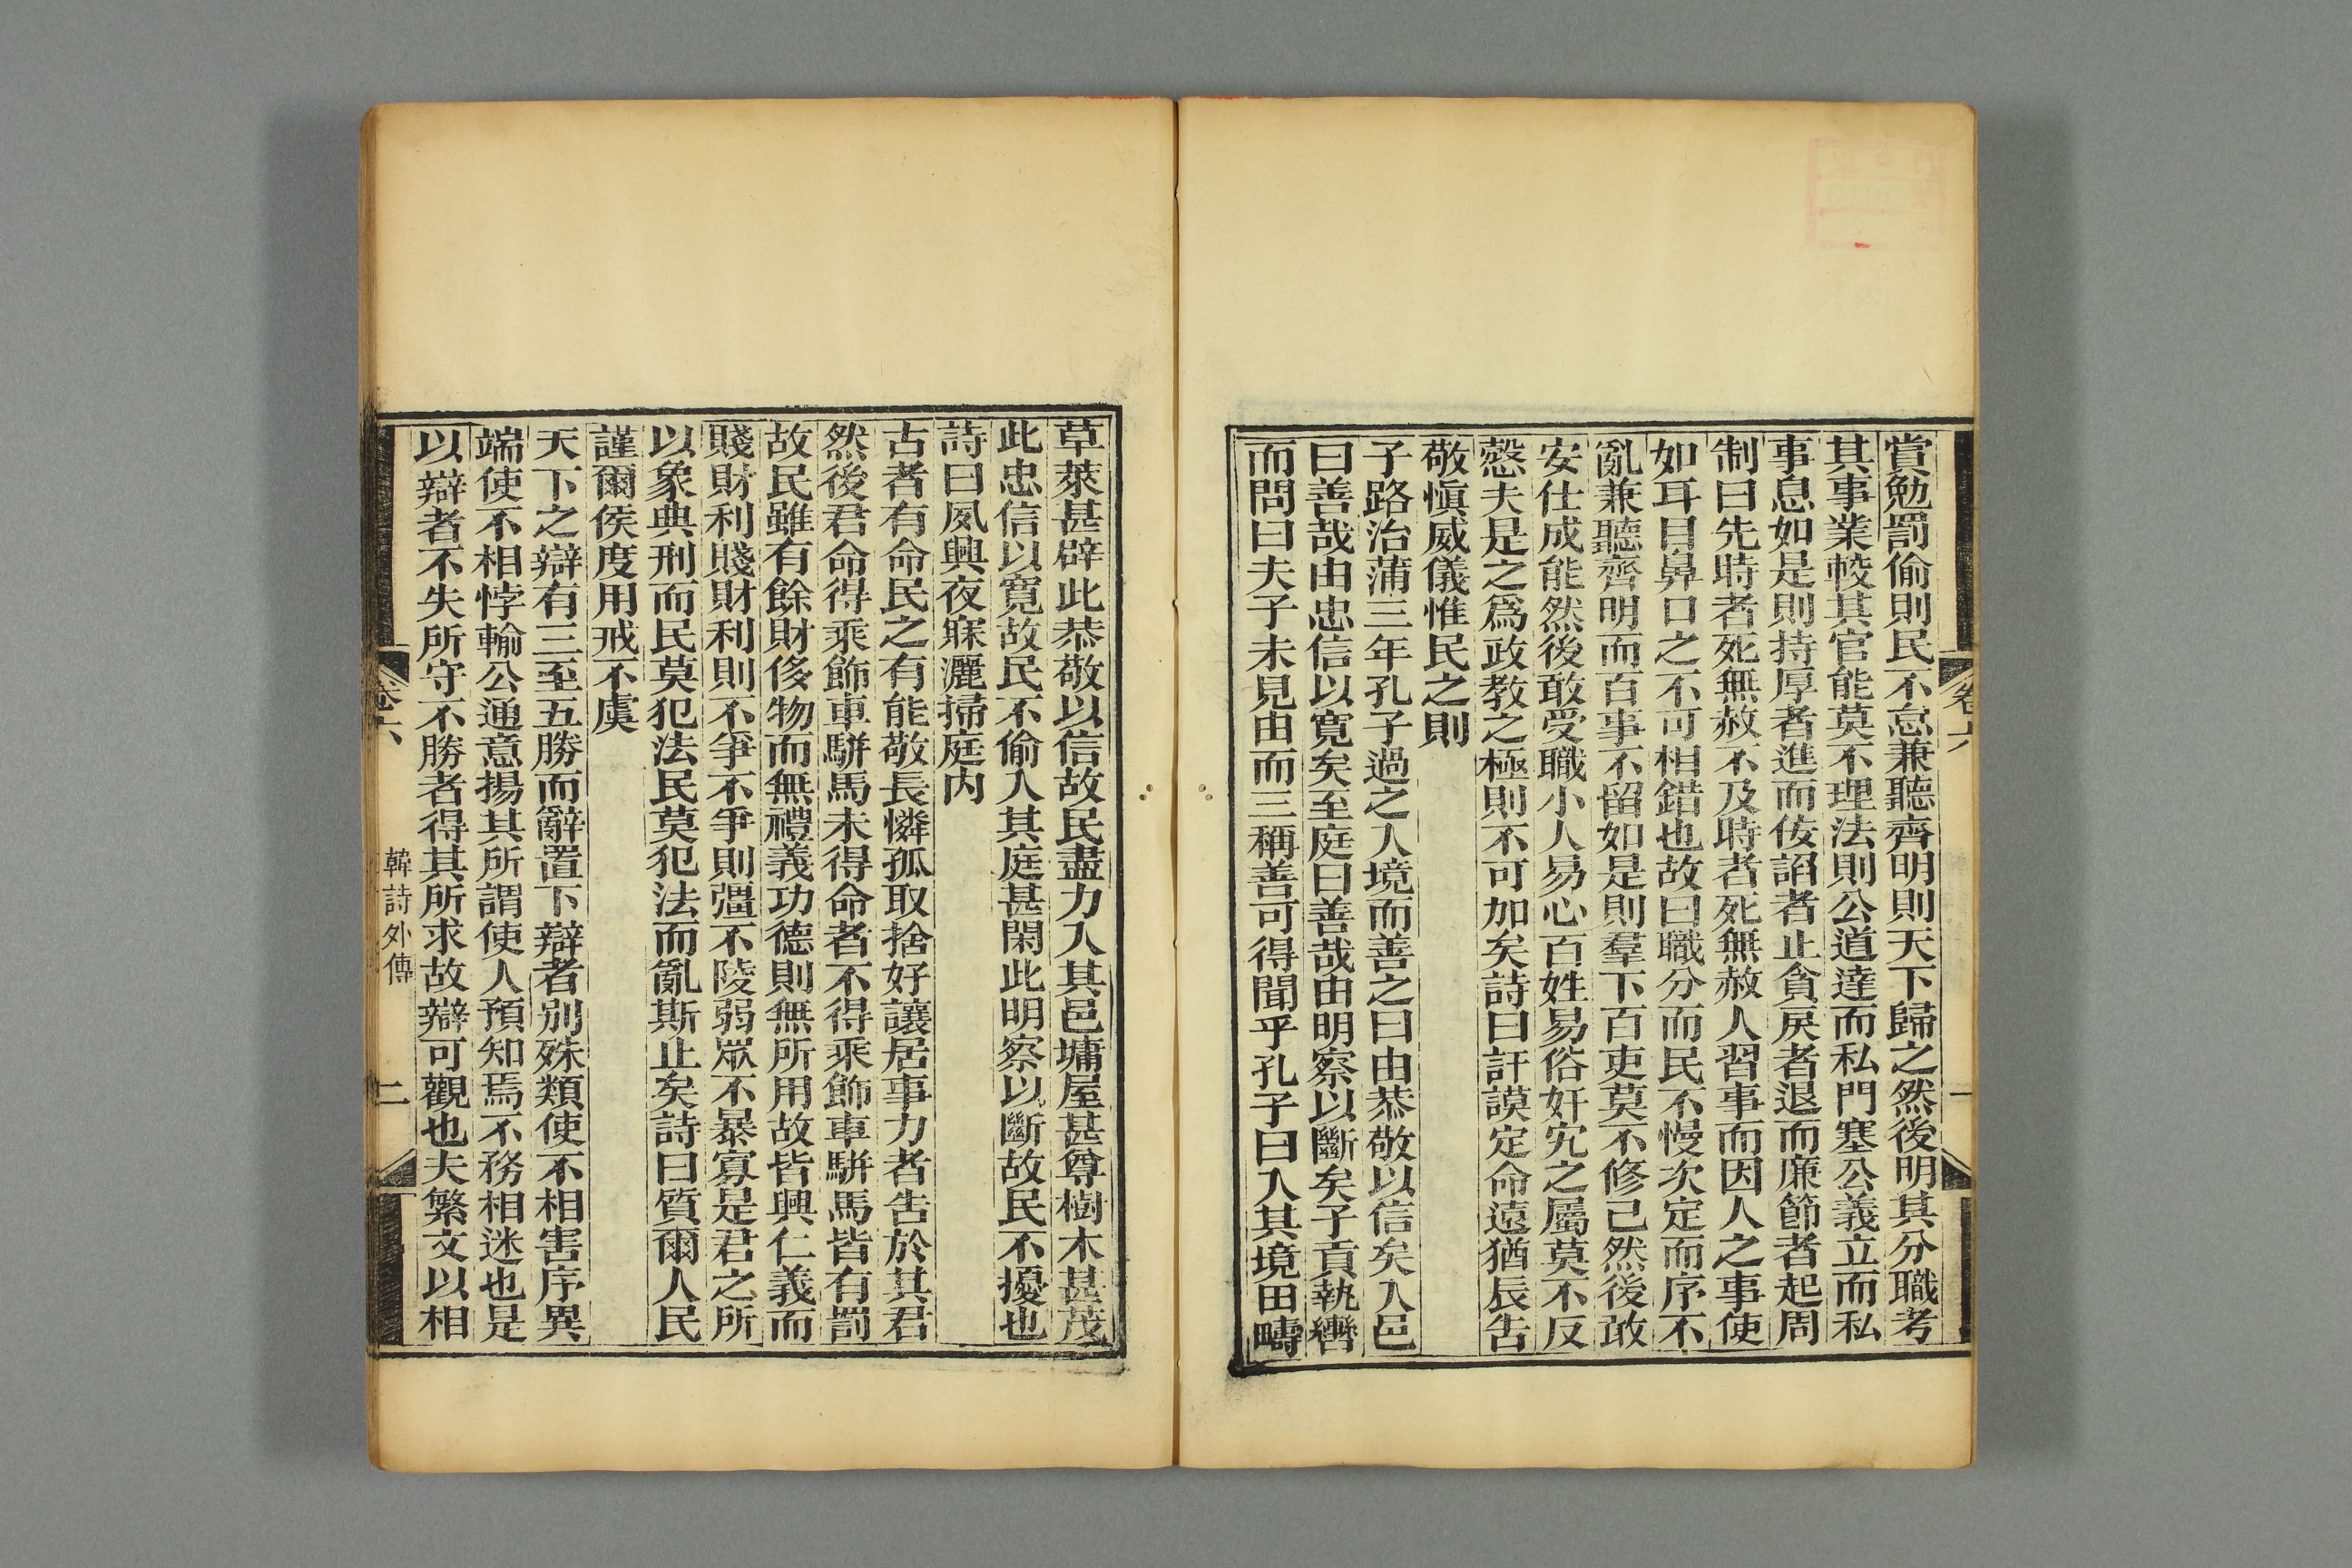 卷六
一
賞勉罰偷則民不怠兼聽齊明則天下歸之然後明其分職考
其事業較其官能莫不理法則公道達而私門塞公義立而私
事息如是則持厚者進而佞謟者止貪戾者退而廉節者起周
制曰先時者死無赦不及時者死無赦人習事而因人之事使
如耳目鼻口之不可相錯也故曰職分而民不慢次定而序不
亂兼聽齊明而百事不留如是則羣下百吏莫不修己然後敢
安仕成能然後敢受職小人易心百姓易俗奸宄之屬莫不反
慤夫是之爲政教之極則不可加矣詩曰訏謨定命遠猶辰告
敬慎威儀惟民之則
子路治蒲三年孔子過之入境而善之曰由恭敬以信矣入邑
曰善哉由忠信以寬矣至庭曰善哉由明察以斷矣子貢執轡
而問曰夫子未見由而三稱善可得聞乎孔子曰入其境田疇
草萊甚辟此恭敬以信故民盡力入其邑墉屋甚尊樹木甚茂
此忠信以寬故民不偷入其庭甚閑此明察以斷故民不擾也
詩曰夙興夜寐灑掃庭內
古者有命民之有能敬長憐孤取捨好讓居事力者告於其君
然後君命得乘飾車駢馬未得命者不得乘飾車駢馬皆有罰
故民雖有餘財侈物而無禮義功德則無所用故皆興仁義而
賤財利賤財利則不爭不爭則彊不陵弱眾不暴寡是君之所
以象典刑而民莫犯法民莫犯法而亂斯止矣詩曰質爾人民
謹爾侯度用戒不虞
天下之辯有三至五勝而辭置下辯者別殊類使不相害序異
端使不相悖輸公通意揚其所謂使人預知焉不務相迷也是
以辯者不失所守不勝者得其所求故辯可觀也夫繁文以相
卷六
韓詩外傳
二